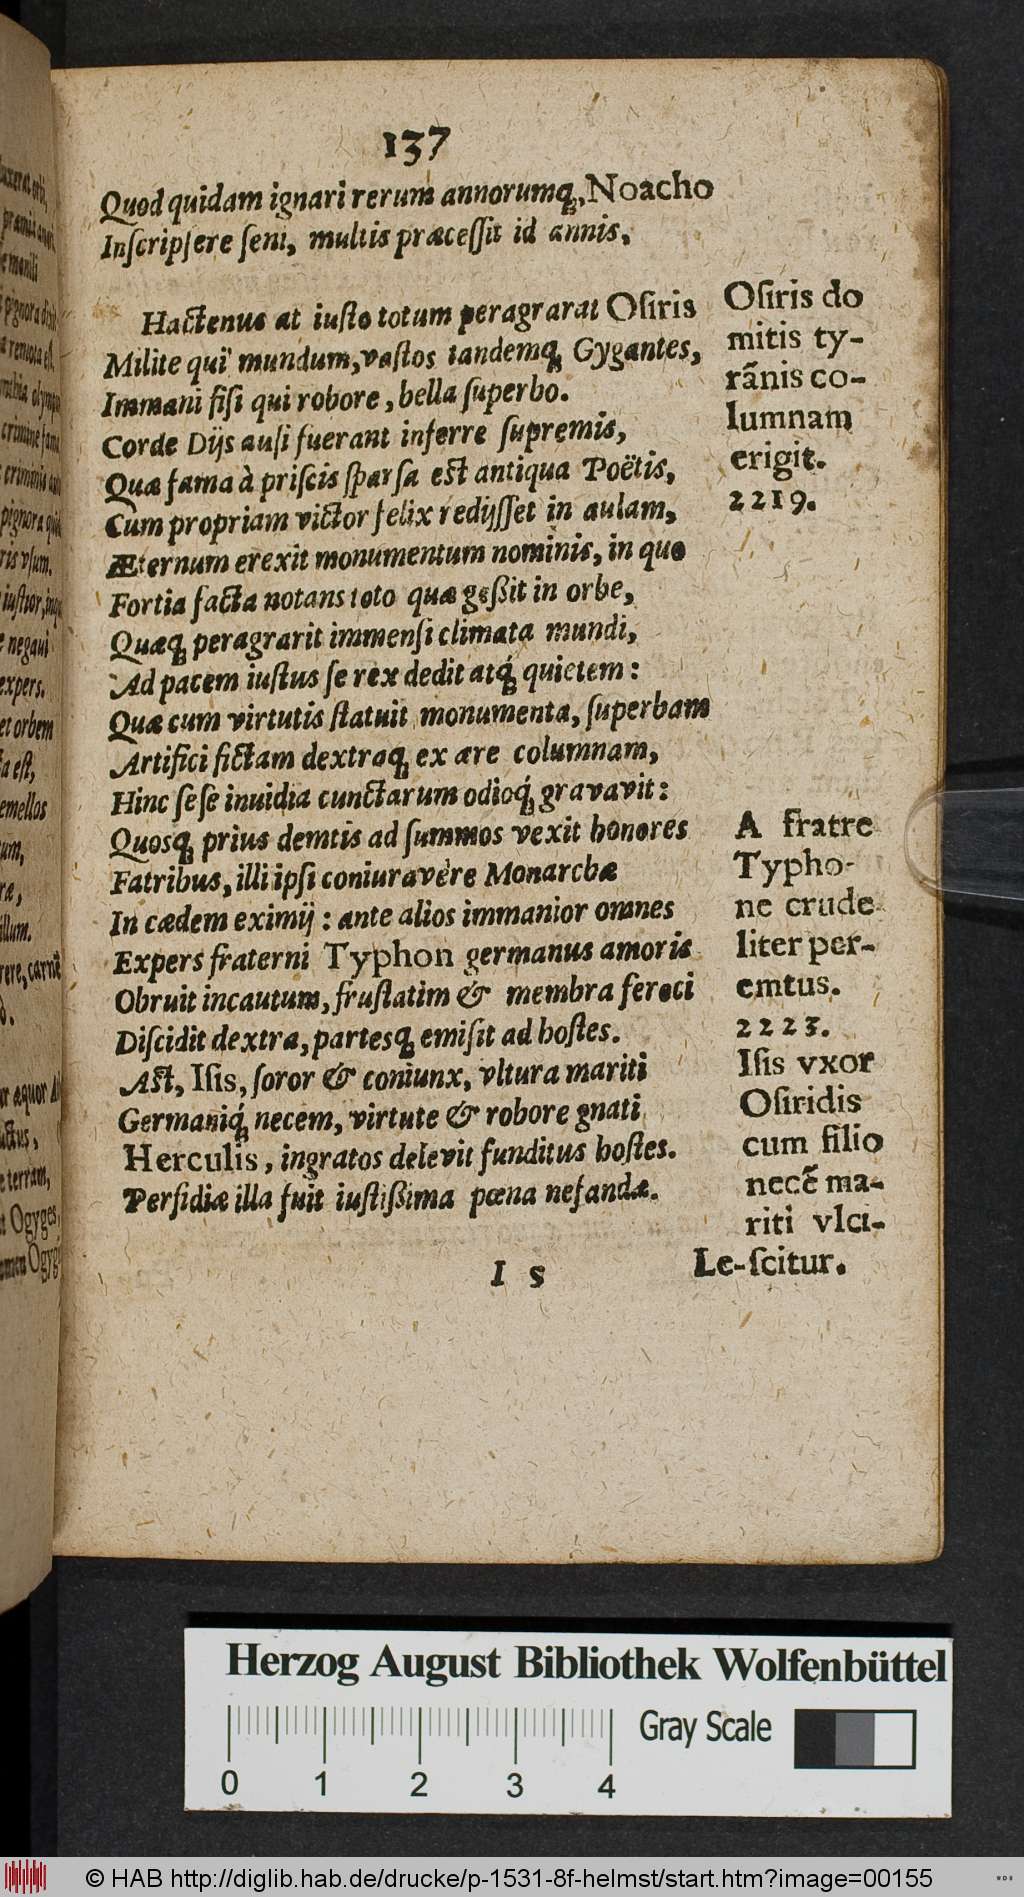 137
Quod quidam ignari rerum annorumq́;, Noacho
Inſcripſere ſeni, multis præceſſit id annis.
Hactenus at iuſto totum peragrarat Oſiris
Milite qui mundum, vaſtos tandemq́; Gygantes,
Immani fiſi qui robore, bella ſuperbo.
Corde Dijs auſi fuerant inferre ſupremis,
Quæ fama à priſcis ſparſa eſt antiqua Poëtis,
Cum propriam victor felix redijſſet in aulam,
Æternum erexit monumentum nominis, in quo
Fortia facta notans toto quæ geßit in orbe,
Quæq; peragrarit immenſi climata mundi,
Ad pacem iuſtus ſe rex dedit atq́; quietem:
Quæ cum virtutis ſtatuit monumenta, ſuperbam
Artifici fictam dextraq; ex ære columnam,
Hinc ſeſe inuidia cunctarum odioq́; gravavit:
Quosq; prius demtis ad ſummos vexit honores
Fatribus, illi ipſi coniuravère Monarchæ
In cædem eximij: ante alios immanior omnes
Expers fraterni Typhon germanus amoris
Obruit incautum, fruſtatim & membra feroci
Diſcidit dextra, partesq; emiſit ad hoſtes.
Aſt, Iſis, ſoror & coniunx, vltura mariti
Germaniq́; necem, virtute & robore gnati
Herculis, ingratos delevit funditus hoſtes.
Perfidiæ illa fuit iuſtißima pœna nefandæ.
I 5
Le-
Oſiris do
mitis ty-
rãnis co-
lumnam
erigit.
2219.
A fratre
Typho-
ne crude
liter per-
emtus.
2223.
Iſis vxor
Oſiridis
cum filio
necẽ ma-
riti vlci-
ſcitur.
Herzog August Bibliothek Wolfenbüttel
Gray Scale
0 1 2 3 4
© HAB http://diglib.hab.de/drucke/p-1531-8f-helmst/start.htm?image=00155